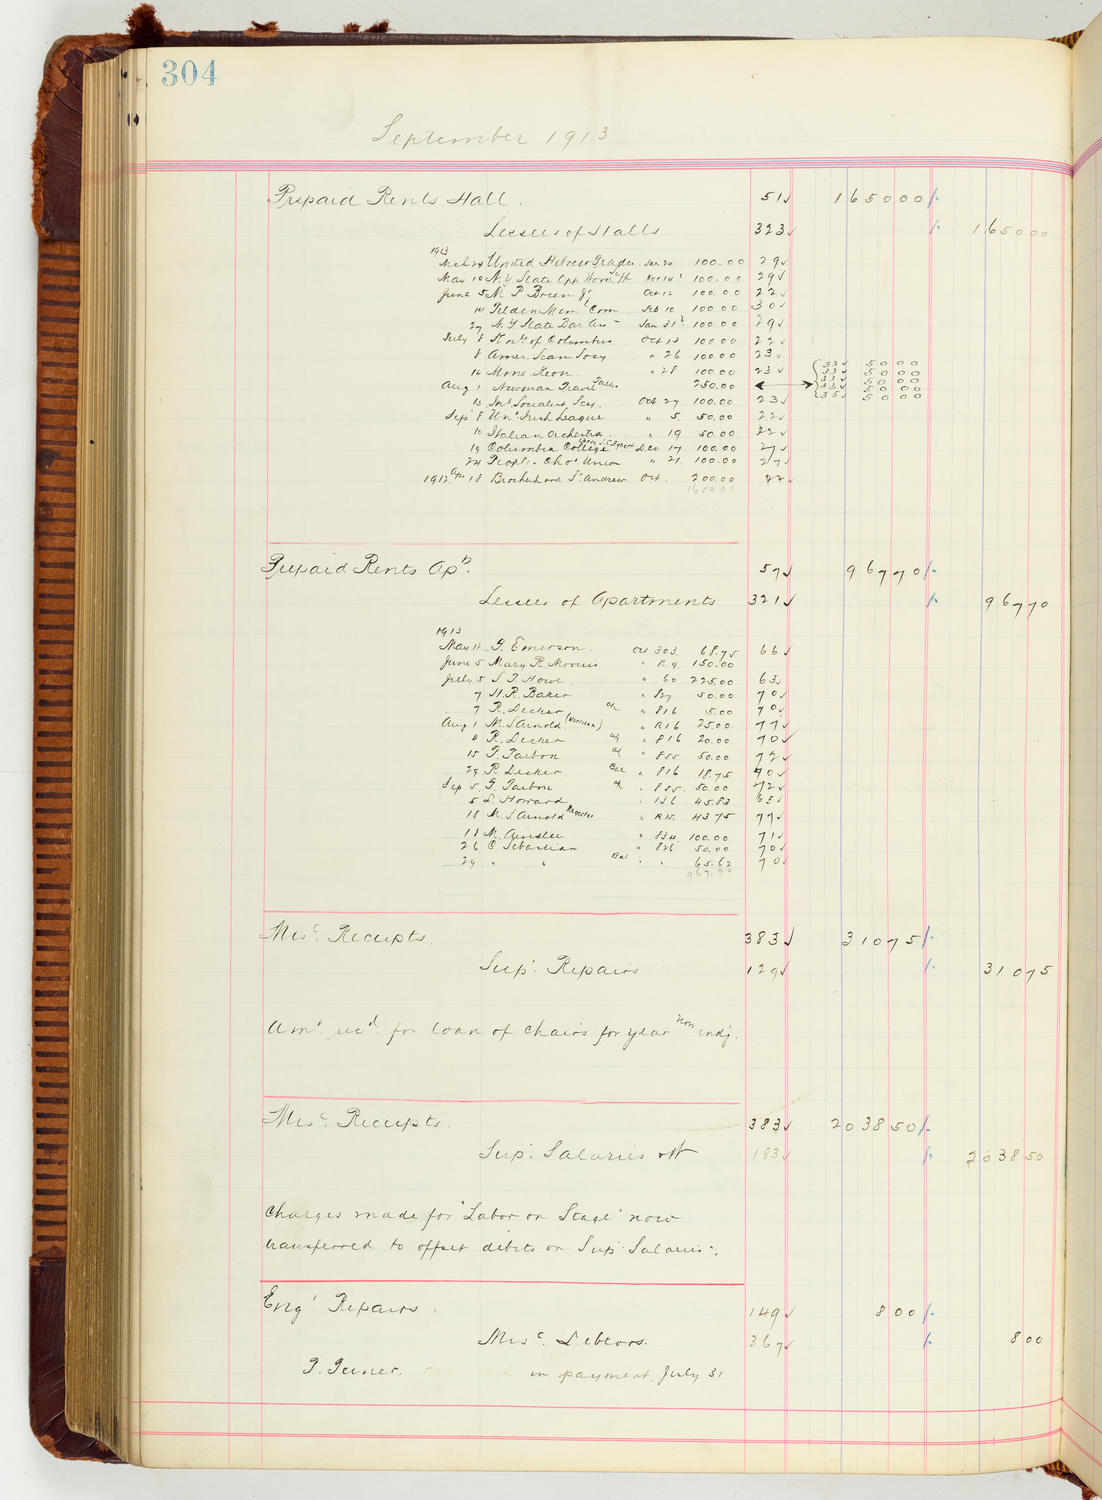 304
September 1913
Prepaid Rents Hall. 51 1650 00
Lessees of Halls 323 1650 00
1913
Mch 24 United Hebrew Trades Jan 20 100.00 29
May 10 N.Y. State Opp. Wom. Nov 14 100.00 29
June 5 M P Brien Jr Oct 12 100.00 22
14 Tilden Mem. Com Feb 10 100.00 30
27 N.Y. State Bar Ass Jan 31 100.00 29
July 8 Knts of Columbus Oct 12 100.00 22
8 Amer. Scan. Socy " 26 100.00 23
14 Mme. " 28 100.00 23
Aug 1 Newman Travel Talks 250.00
13 Int. Socialist Scy. Oct 27 100.00 23
Sep 8 Un. Irish League " 5. 50.00 22
10 Italian Orchestra " 19 50.00 22
19 Columbia College Dec 17 100.00 27
24 People's Chor. Union " 21. 100.00 27
1912 Apr 18 Brotherhood St. Andrew Oct. 200.00 22
1650.00
Prepaid Rents Aps. 57 967 70
Lessees of Apartments 321 967 70
1913
May 12 G. Emerson Oct 303 68.75 66
June 5 Mary R. " R 9. 150.00
July 5 S. T. Howe " 60 225.00 63
7 H. R. Baker " 827 50.00 70
7 R. Decker a/c " 816 5.00 70
Aug 1 M. S Arnold " R16 25.00 77
11 R. Decker a/c " 816 20.00 70
15 G. Tarbox a/c " 855 50.00 72
29 R. Decker Bal " 816 18.75 70
Sep 5 G. Tarbox a/c " 855. 50.00 72
5 L. Howard " 136 45.83 65
15 M. S Arnold " R15. 43 75 77
11 M. Ainslee " 834 100.00 71
26 C. Sebastian " 826 50.00 70
29 " " Bal " " 65.62 70
967.70
Misc. Receipts. 383 310 75
Sup. Repairs 129 310 75
Amt recd. for loan of chairs for year now endg.
Misc. Receipts. 383 2038 50
Sup. Salaries 183 2038 50
Charges made for "Labor on Stage" now
transferred to offset debits on Sup. Salaries.
Eng. Repairs. 149 8 00
Misc. Debtors. 367 8 00
in payment July 31